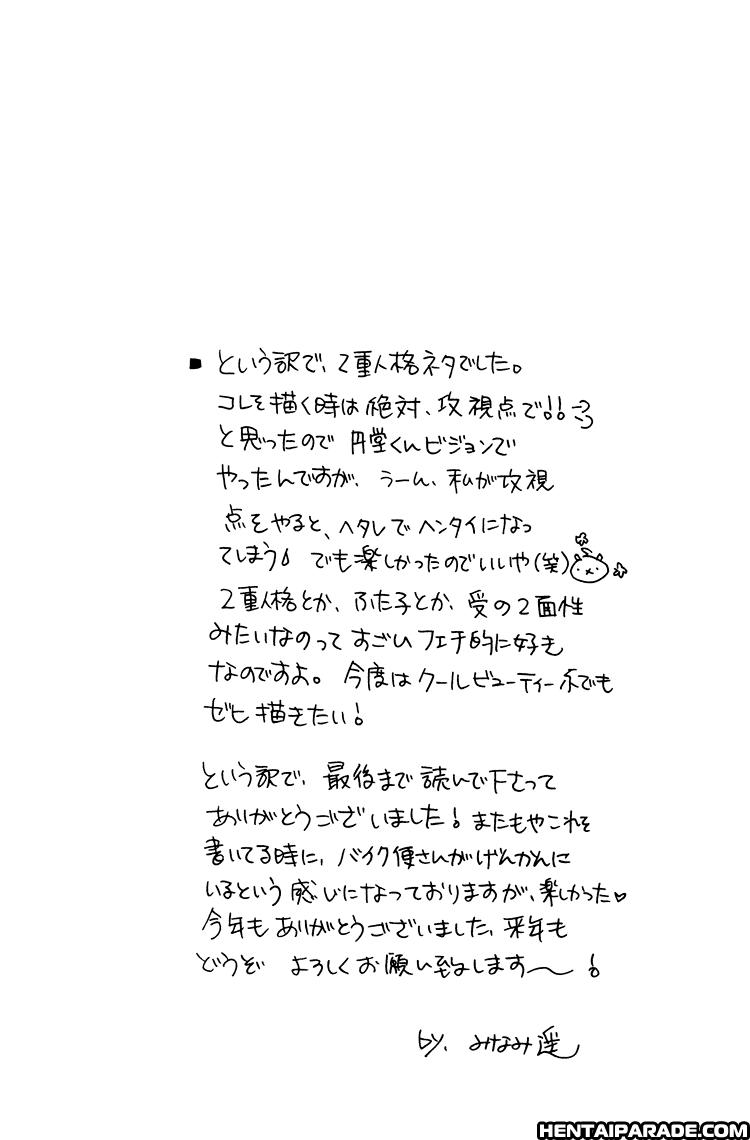 ■ という訳で、2重人格ネタでした。
コレを描く時は絶対、攻視点で!!
と思ったので 円堂くんビジョンで
やったんですが、うーん、私が攻視
点をやると、ヘタレでヘンタイになっ
てしまう! でも楽しかったのでいいや(笑)
2重人格とか、ふた子とか、受の2面性
みたいなのって すごいフェチ的に好き
なのですよ。今度はクールビューティー でも
ゼヒ描きたい!
という訳で、最後まで読んで下さって
ありがとうございました! またもやこれを
書いてる時に、バイク便さんがげんかんに
いるという感じになっておりますが、楽しかった♥
今年もありがとうございました、来年も
どうぞ よろしくお願い致します〜!
by. みなみ遥
HENTAIPARADE.COM